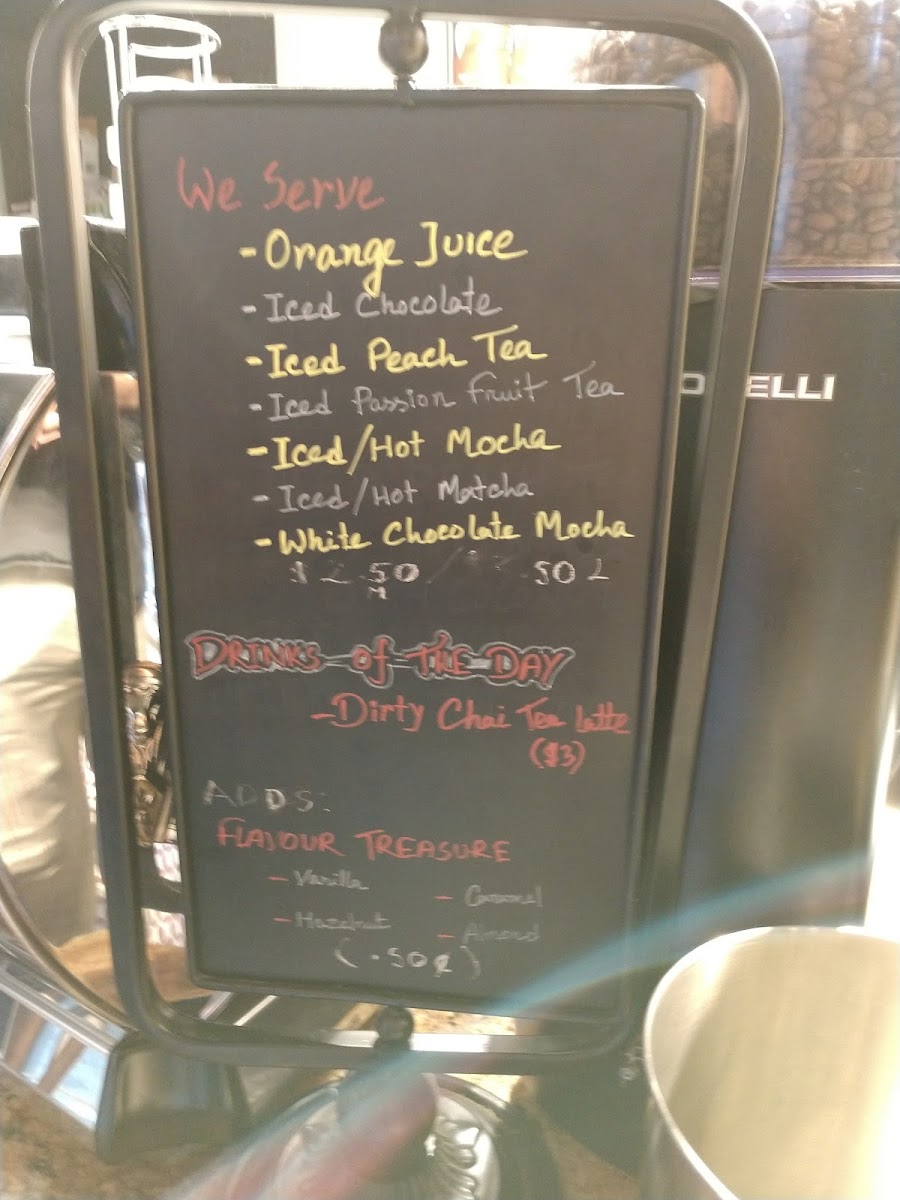 We Serve
- Orange Juice
- Iced Chocolate
- Iced Peach Tea
- Iced Passion Fruit Tea
- Iced/Hot Mocha
- Iced/Hot Matcha
- White Chocolate Mocha
$2.50 / .50 L
M
DRINKS of THE DAY
- Dirty Chai Tea Latte
($3)
ADDS:
FLAVOUR TREASURE
- Vanilla - Caramel
- Hazelnut - Almond
(.50¢)
ELLI